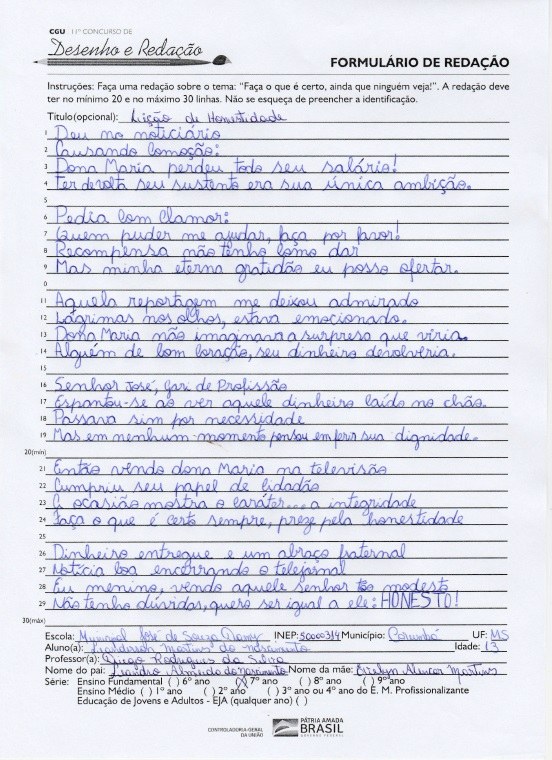 CGU 11º CONCURSO DE
Desenho e Redação
FORMULÁRIO DE REDAÇÃO
Instruções: Faça uma redação sobre o tema: "Faça o que é certo, ainda que ninguém veja!". A redação deve
ter no mínimo 20 e no máximo 30 linhas. Não se esqueça de preencher a identificação.
Título (opcional): Lição de Honestidade
1 Deu no noticiário
2 Causando comoção:
3 Dona Maria perdeu todo seu salário!
4 Ter devolta seu sustento era sua única ambição.
5
6 Pedia com clamor:
7 Quem puder me ajudar, faça por favor!
8 Recompensa não tenho como dar
9 Mas minha eterna gratidão eu posso ofertar.
0
11 Aquela reportagem me deixou admirado
12 Lágrimas nos olhos, estava emocionado.
13 Dona Maria não imaginava a surpresa que viria.
14 Alguém de bom coração, seu dinheiro devolveria.
15
16 Senhor José, gari de Profissão
17 Espantou-se ao ver aquele dinheiro caído no chão.
18 Passava sim por necessidade
19 Mas em nenhum momento pensou em ferir sua dignidade.
20(min)
21 Então vendo dona Maria na televisão
22 Cumpriu seu papel de cidadão
23 A ocasião mostra o caráter... a integridade
24 Faça o que é certo sempre, preze pela honestidade
25
26 Dinheiro entregue e um abraço fraternal
27 Notícia boa encerrando o telejornal
28 Eu menino, vendo aquele senhor tão modesto
29 Não tenho dúvidas, quero ser igual a ele: HONESTO!
30(máx)
Escola: Municipal José de Souza Damy INEP: 50000314 Município: Corumbá UF: MS
Aluno(a): Martins do nascimento Idade: 13
Professor(a): Diego Rodrigues da Silva
Nome do pai: Leandro Almeida do nascimento Nome da mãe: Evelyn Alencar Martins
Série: Ensino Fundamental ( ) 6º ano (X) 7º ano ( ) 8º ano ( ) 9º ano
Ensino Médio ( ) 1º ano ( ) 2º ano ( ) 3º ano ou 4º ano do E. M. Profissionalizante
Educação de Jovens e Adultos - EJA (qualquer ano) ( )
CONTROLADORIA-GERAL
DA UNIÃO
PÁTRIA AMADA
BRASIL
GOVERNO FEDERAL